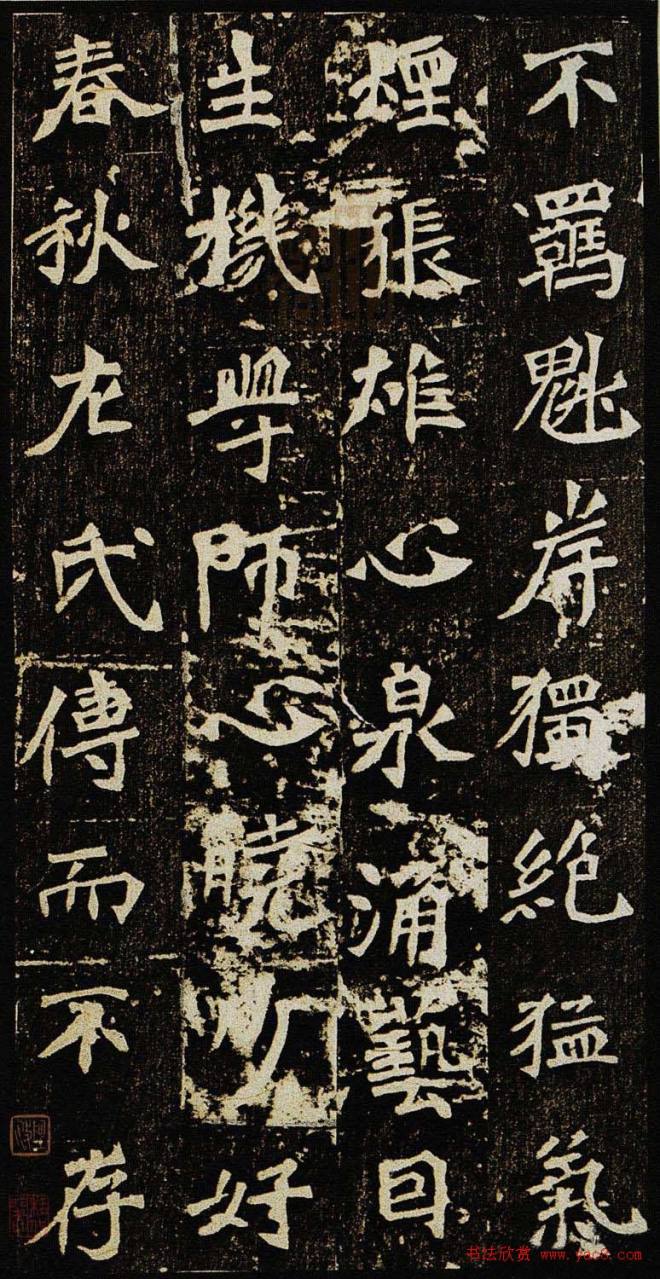 不羈魁岸獨絕猛氣
煙張雄心泉涌藝因
生機學師心曉少好
春秋左氏傳而不存
书法欣赏 www.yac8.com